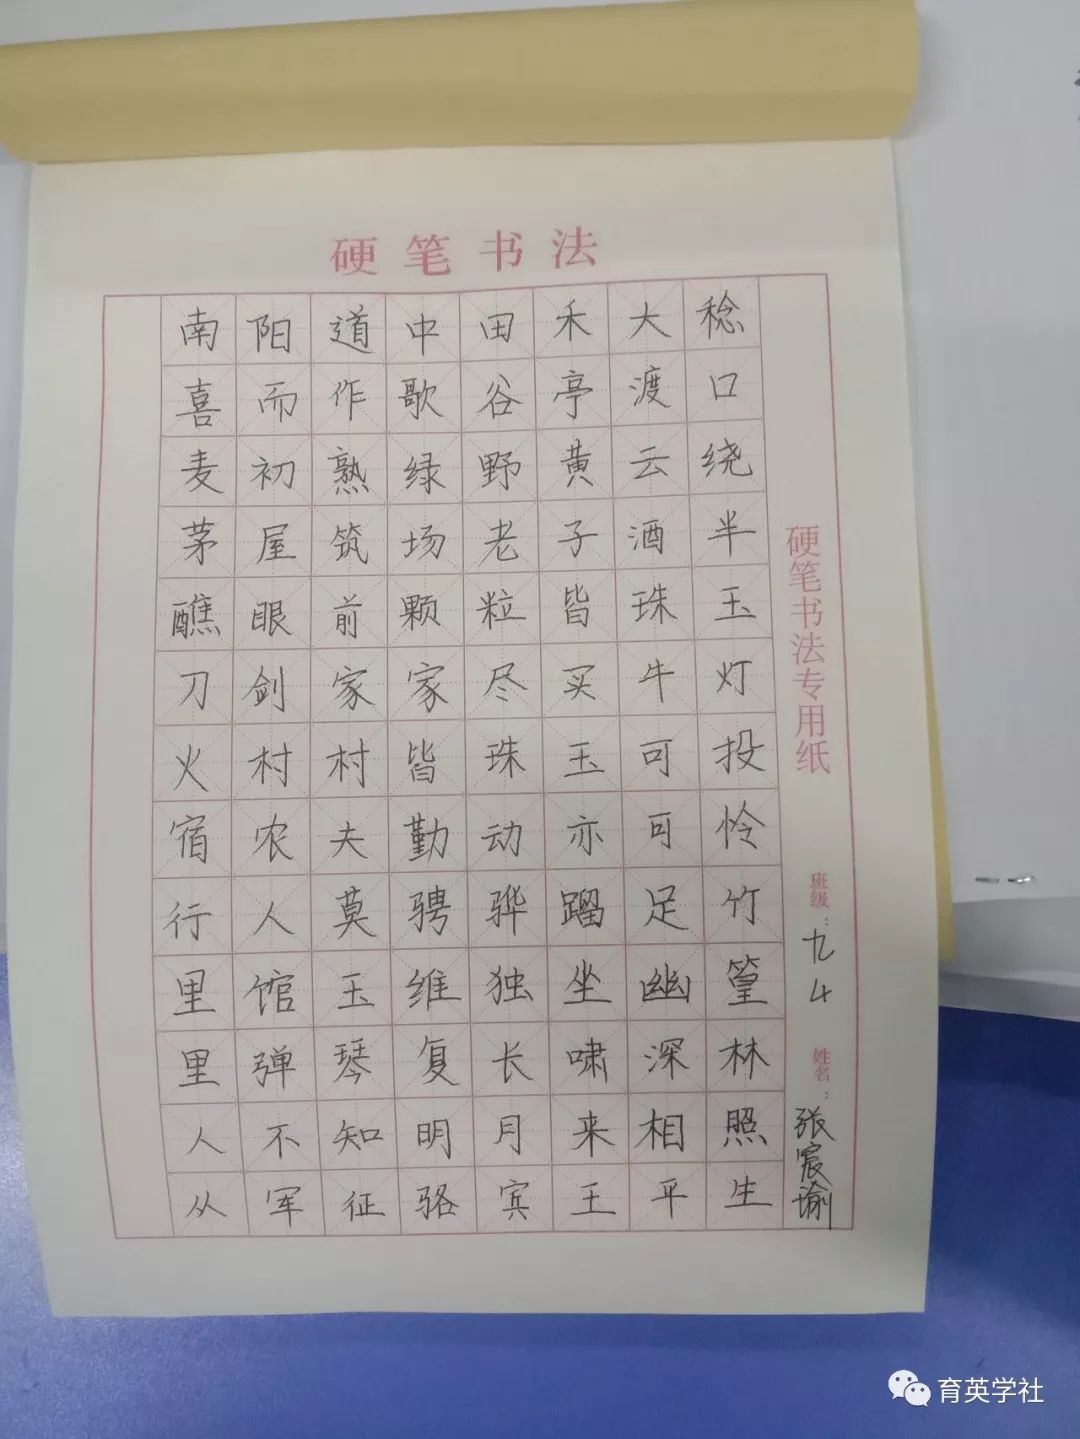 硬笔书法
南阳道中田禾大稔
喜而作歌谷亭渡口
麦初熟绿野黄云绕
茅屋筑场老子酒半
醮眼前颗粒皆珠玉
刀剑家家尽买牛灯
火村村皆珠玉可投
宿农夫勤动亦可怜
行人莫骋骅蹓足竹
里馆玉维独坐幽篁
里弹琴复长啸深林
人不知明月来相照
从军征骆宾王平生
硬笔书法专用纸
班级：九4
姓名：张宸谕
育英学社